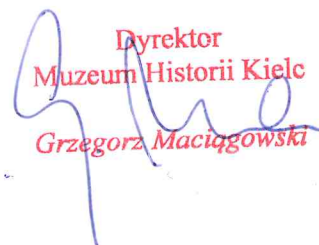 Dyrektor
Muzeum Historii Kielc
Grzegorz Maciągowski